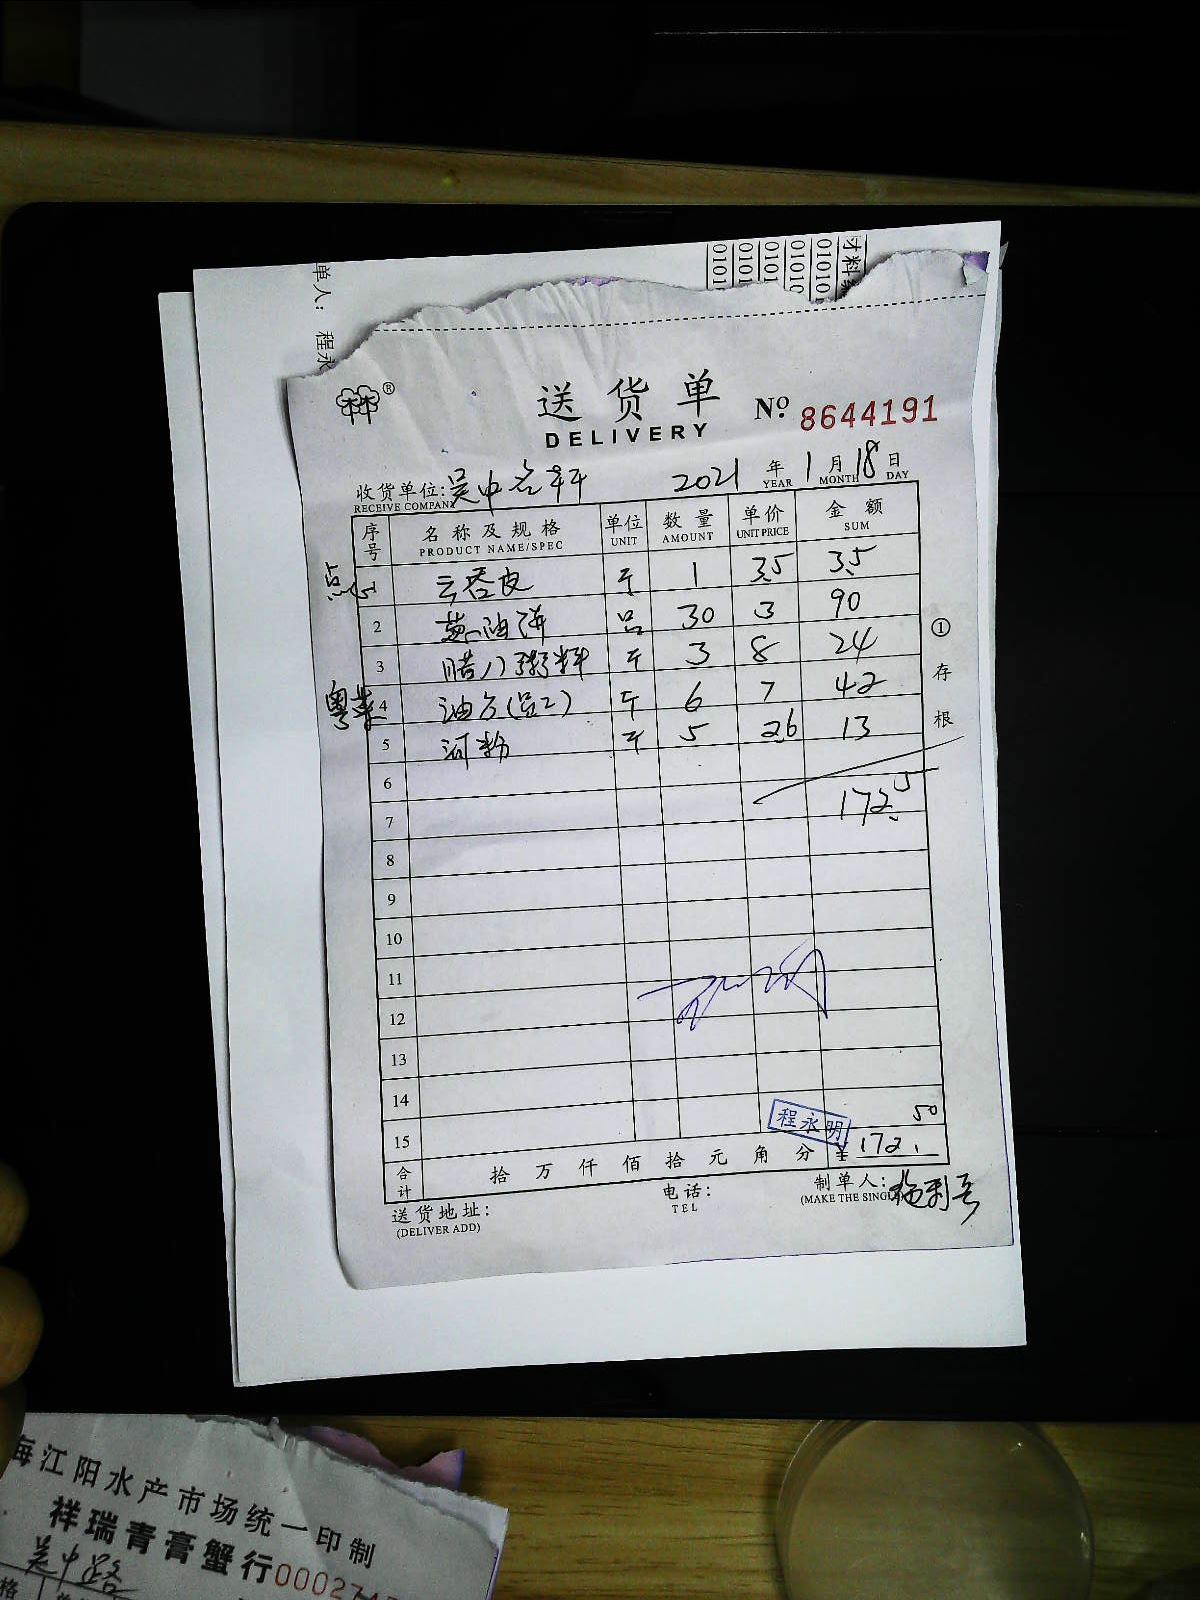 单人：程永
材料
010101
0101
0101
0101
0101
送货单
DELIVERY
Nº. 8644191
收货单位: 吴中名轩 2021 年 1 月 18 日
RECEIVE COMPANY YEAR MONTH DAY
序号 名称及规格 单位 数量 单价 金额
PRODUCT NAME/SPEC UNIT AMOUNT UNIT PRICE SUM
点心 1 云吞皮 斤 1 3.5 3.5
2 葱油饼 只 30 3 90
3 腊八粥料 斤 3 8 24
粤菜 4 油方(品2) 斤 6 7 42
5 河粉 斤 5 2.6 13
6
7 172.5
8
9
10
11
12
13
14
程永明
15
合计 拾万仟佰拾元角分 ¥172.50
送货地址: 电话: 制单人:
(DELIVER ADD) TEL (MAKE THE SINGL
① 存根
海江阳水产市场统一印制
祥瑞青膏蟹行 00027
吴中路
格